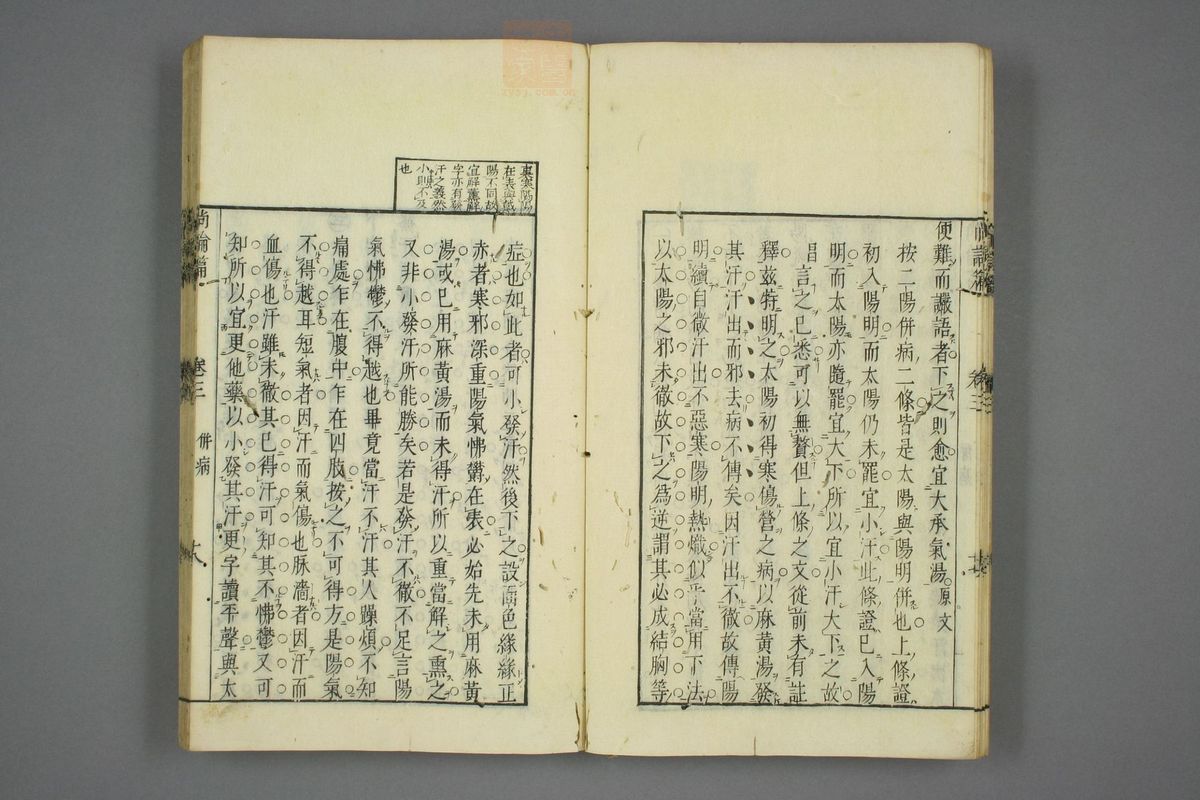 便難而讝語者下之則愈宜大承氣湯原文
按二陽併病二條皆是太陽與陽明併也上條證
初入陽明而太陽仍未罷宜小汗此條證已入陽
明而太陽亦隨罷宜大下所以宜小汗大下之故
昌言之已悉可以無贅但上條之文從前未有註
釋茲特明之太陽初得寒傷營之病以麻黃湯發
其汗汗出而邪去病不傳矣因汗出不徹故傳陽
明續自微汗出不惡寒陽明熱熾似乎當用下法
以太陽之邪未徹故下之為逆謂其必成結胸等
在表與
陽不同故
宜解薰解
字亦有發
汗之義然
小則不及
也
症也如此者可小發汗然後下之設面色緣緣正
赤者寒邪深重陽氣怫鬱在表必始先未用麻黃
湯或已用麻黃湯而未得汗所以重當解之熏之
又非小發汗所能勝矣若是發汗不徹不足言陽
氣怫鬱不得越也畢竟當汗不汗其人躁煩不知
痛處乍在腹中乍在四肢按之不可得方是陽氣
不得越耳短氣者因汗而氣傷也脉濇者因汗而
血傷也汗雖未徹其已得汗可知其不怫鬱又可
知所以宜更他藥以小發其汗更字讀平聲與太
尚論篇 卷三 併病